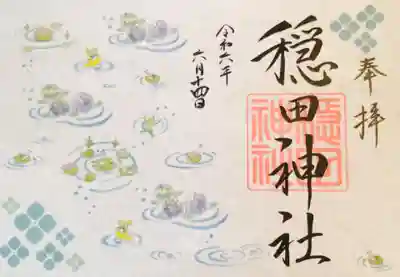 奉拝
穏田神社
穏田
神社
令和六年
六月十四日